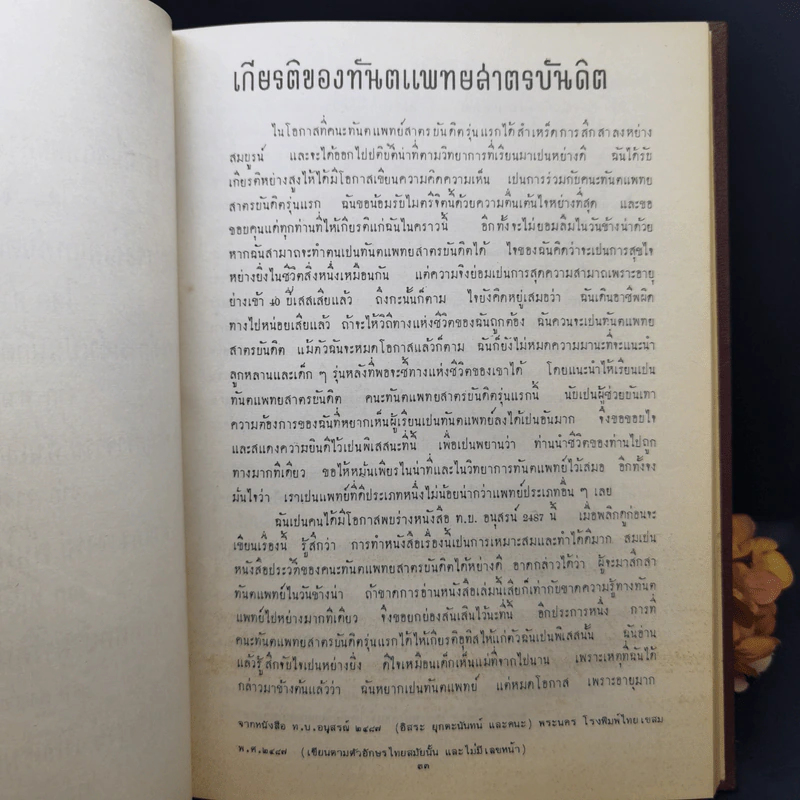 เกียรติของทันตแพทยสาตรบันดิต
ไนโอกาสที่คนะทันตแพทย์สาตรบันดิตรุ่นแรกได้สำเหร็ดการสึกสาลงหย่าง
สมบูรน์ และจะได้ออกไปปติบัติน่าที่ตามวิทยาการที่เรียนมาเปนหย่างดี ฉันได้รับ
เกียรติหย่างสูงไห้ได้มีโอกาสเขียนความคิดความเห็น เปนการร่วมกับคนะทันตแพทย
สาตรบันดิตรุ่นแรก ฉันขอน้อมรับไมตรีจิตนี้ด้วยความตื่นเต้นไจหย่างที่สุด และขอ
ขอบคุนแด่ทุกท่านที่ไห้เกียรติแก่ฉันไนคราวนี้ อีกทั้งจะไม่ยอมลืมไนวันข้างน่าด้วย
หากฉันสามาถจะทำตนเปนทันตแพทยสาตรบันดิตได้ ไจของฉันคิดว่าจะเปนการสุขไจ
หย่างยิ่งไนชีวิตสิ่งหนึ่งเหมือนกัน แต่ความจิงย่อมเปนการสุดความสามาถเพราะอายุ
ย่างเข้า 40 ปีเสสเสียแล้ว ถึงกะนั้นก็ตาม ไจยังคิดหยู่เสมอว่า ฉันเดินอาชีพผิด
ทางไปหน่อยเสียแล้ว ถ้าจะไห้วิถีทางแห่งชีวิตของฉันถูกต้อง ฉันควนจะเปนทันตแพทย
สาตรบันดิต แม้ตัวฉันจะหมดโอกาสแล้วก็ตาม ฉันก็ยังไม่หมดความมานะที่จะแนะนำ
ลูกหลานและเด็ก ๆ รุ่นหลังที่พอจะชี้ทางแห่งชีวิตของเขาได้ โดยแนะนำไห้เรียนเปน
ทันตแพทยสาตรบันดิต คนะทันตแพทยสาตรบันดิตรุ่นแรกนี้ นับเปนผู้ช่วยบันเทา
ความต้องการของฉันที่หยากเห็นผู้เรียนเปนทันตแพทย์ลงได้เปนอันมาก จึงขอขอบไจ
และสแดงความยินดีไว้เปนพิเสสนะที่นี้ เพื่อเปนพยานว่า ท่านนำชีวิตของท่านไปถูก
ทางมากทีเดียว ขอไห้หมั่นเพียรไนน่าที่และไนวิทยาการทันตแพทย์ไว้เสมอ อีกทั้งจง
มั่นไจว่า เราเปนแพทย์ที่ดีประเภทหนึ่งไม่น้อยน่ากว่าแพทย์ประเภทอื่น ๆ เลย
ฉันเปนคนได้มีโอกาสพบร่างหนังสือ ท.ย. อนุสรน์ 2487 นี้ เมื่อพลิกดูก่อนจะ
เขียนเรื่องนี้ รู้สึกว่า การทำหนังสือเรื่องนี้เปนการเหมาะสมและทำได้ดีมาก สมเปน
หนังสือประวัติของคนะทันตแพทยสาตรบันดิตได้หย่างดี อาดกล่าวได้ว่า ผู้จะมาสึกสา
ทันตแพทย์ไนวันข้างน่า ถ้าขาดการอ่านหนังสือเล่มนี้เสียก็เท่ากับขาดความรู้ทางทันต
แพทย์ไปหย่างมากทีเดียว จึงขอยกย่องสันเสินไว้นะที่นี้ อีกประการหนึ่ง การที่
คนะทันตแพทยสาตรบันดิตรุ่นแรกได้ไห้เกียรติอุทิสไห้แก่ตัวฉันเปนพิเสสนั้น ฉันอ่าน
แล้วรู้สึกจับไจเปนหย่างยิ่ง ดีไจเหมือนเด็กเห็นแม่ที่จากไปนาน เพราะเหตุที่ฉันได้
กล่าวมาข้างต้นแล้วว่า ฉันหยากเปนทันตแพทย์ แต่หมดโอกาส เพราะอายุมาก
จากหนังสือ ท.บ.อนุสรณ์ ๒๔๘๗ (อิสระ ยุกตะนันทน์ และคนะ) พระนคร โรงพิมพ์ไทยเขสม
พ.ศ.๒๔๘๗ (เขียนตามตัวอักษรไทยสมัยนั้น และไม่มีเลขหน้า)
๓๓